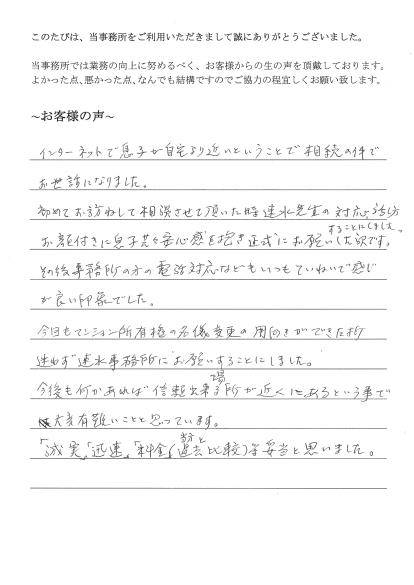 このたびは、当事務所をご利用いただきまして誠にありがとうございました。
当事務所では業務の向上に努めるべく、お客様からの生の声を頂戴しております。
よかった点、悪かった点、なんでも結構ですのでご協力の程宜しくお願い致します。
~お客様の声~
インターネットで息子が自宅より近いということで相続の件で
お世話になりました。
初めてお訪ねして相談させて頂いた時速水先生の対応、話し方
お顔付きに息子共々安心感を抱き正式にお願いすることにしました。
その後事務所の方の電話対応などもいつもていねいで感じ
が良い印象でした。
今回もマンション所有権の名儀変更の用向きができた折
迷わず速水事務所にお願いすることにしました。
今後も何かあれば信頼出来る場所が近くにあるという事で
大変有難いことと思っています。
「誠実」「迅速」「料金」(過去と比較)等妥当と思いました。